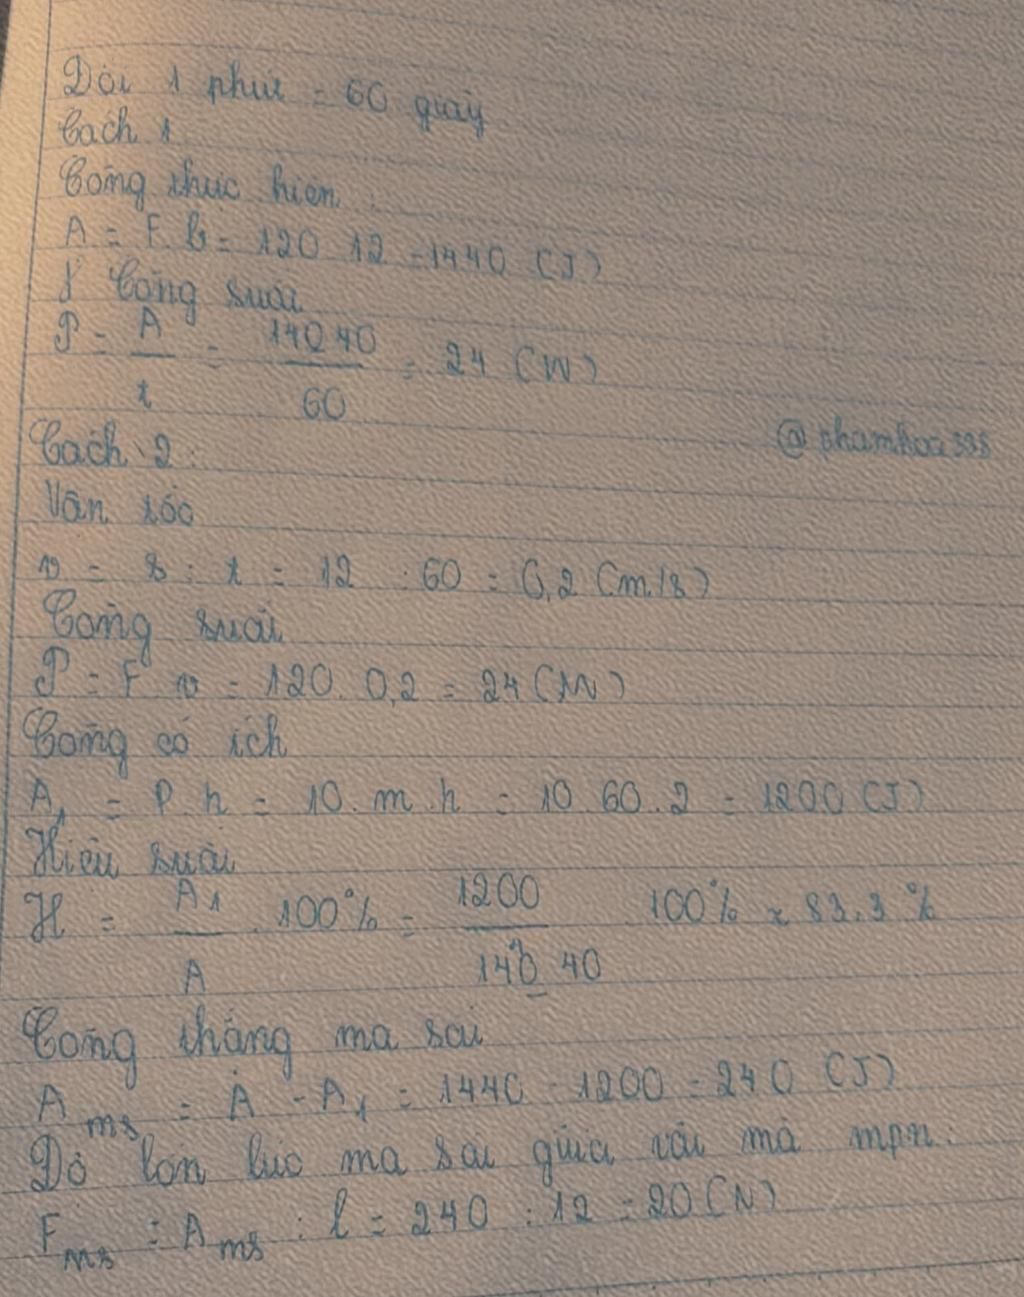 Đổi 1 phút = 60 giây
Cách 1
Công thực hiện :
A = F. l = 120 12 = 1440 (J)
Công suất
P = A / t = 14040 / 60 = 24 (W)
@phamhoa398
Cách 2 :
Vận tốc
v = s : t = 12 : 60 = 0,2 (m/s)
Công suất
P = F v = 120. 0,2 = 24 (W)
Công có ích
A1 = P. h = 10. m. h = 10 60. 2 = 1200 (J)
Hiệu suất
H = A1 / A . 100% = 1200 / 14040 100% ≈ 83.3 %
Công thắng ma sát
Ams = A - A1 = 1440 - 1200 = 240 (J)
Độ lớn lực ma sát giữa vật mà mpn.
Fms = Ams : l = 240 : 12 = 20 (N)